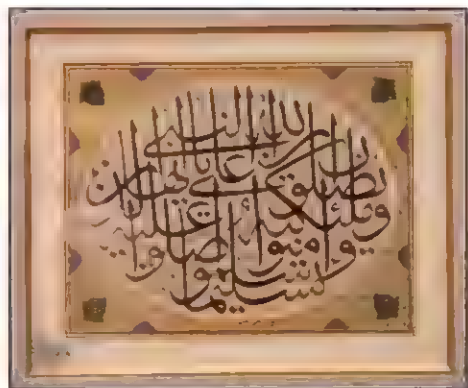 ان الله وملئكته يصلون على النبي يا ايها الذين امنوا صلوا عليه وسلموا تسليما